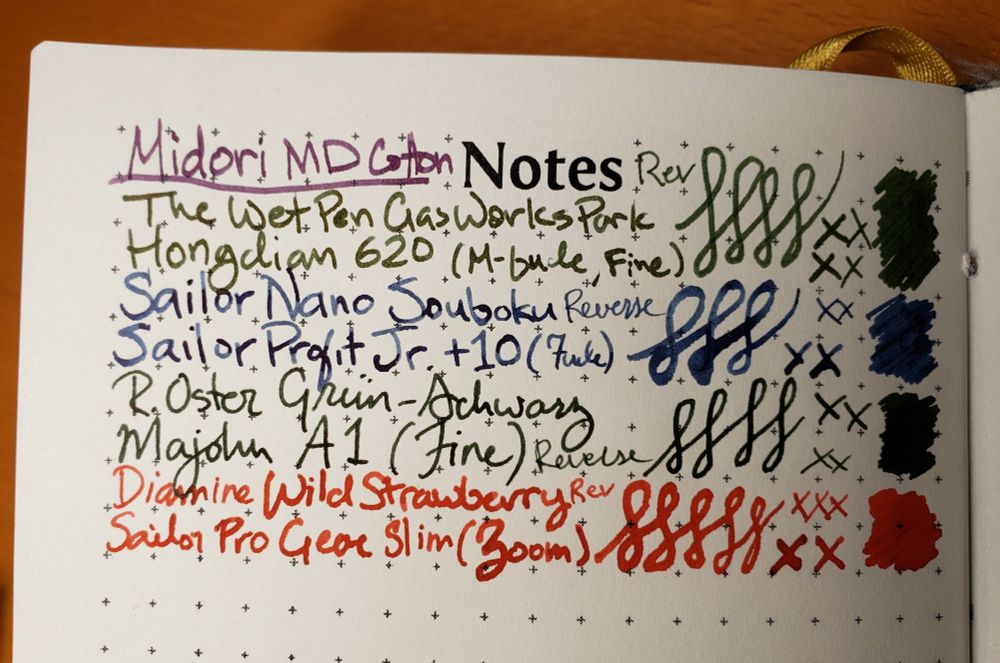 Midori MD Cotton Notes Rev
The Wet Pen Gas Works Park
Hongdian 620 (M-bude, Fine) xx xx
Sailor Nano Souboku Reverse xx
Sailor Profit Jr. +10 (Fude) xx
R. Oster Grün-Schwarz xx
Majohn A1 (Fine) Reverse xx
Diamine Wild Strawberry Rev xxx
Sailor Pro Gear Slim (Zoom) xx